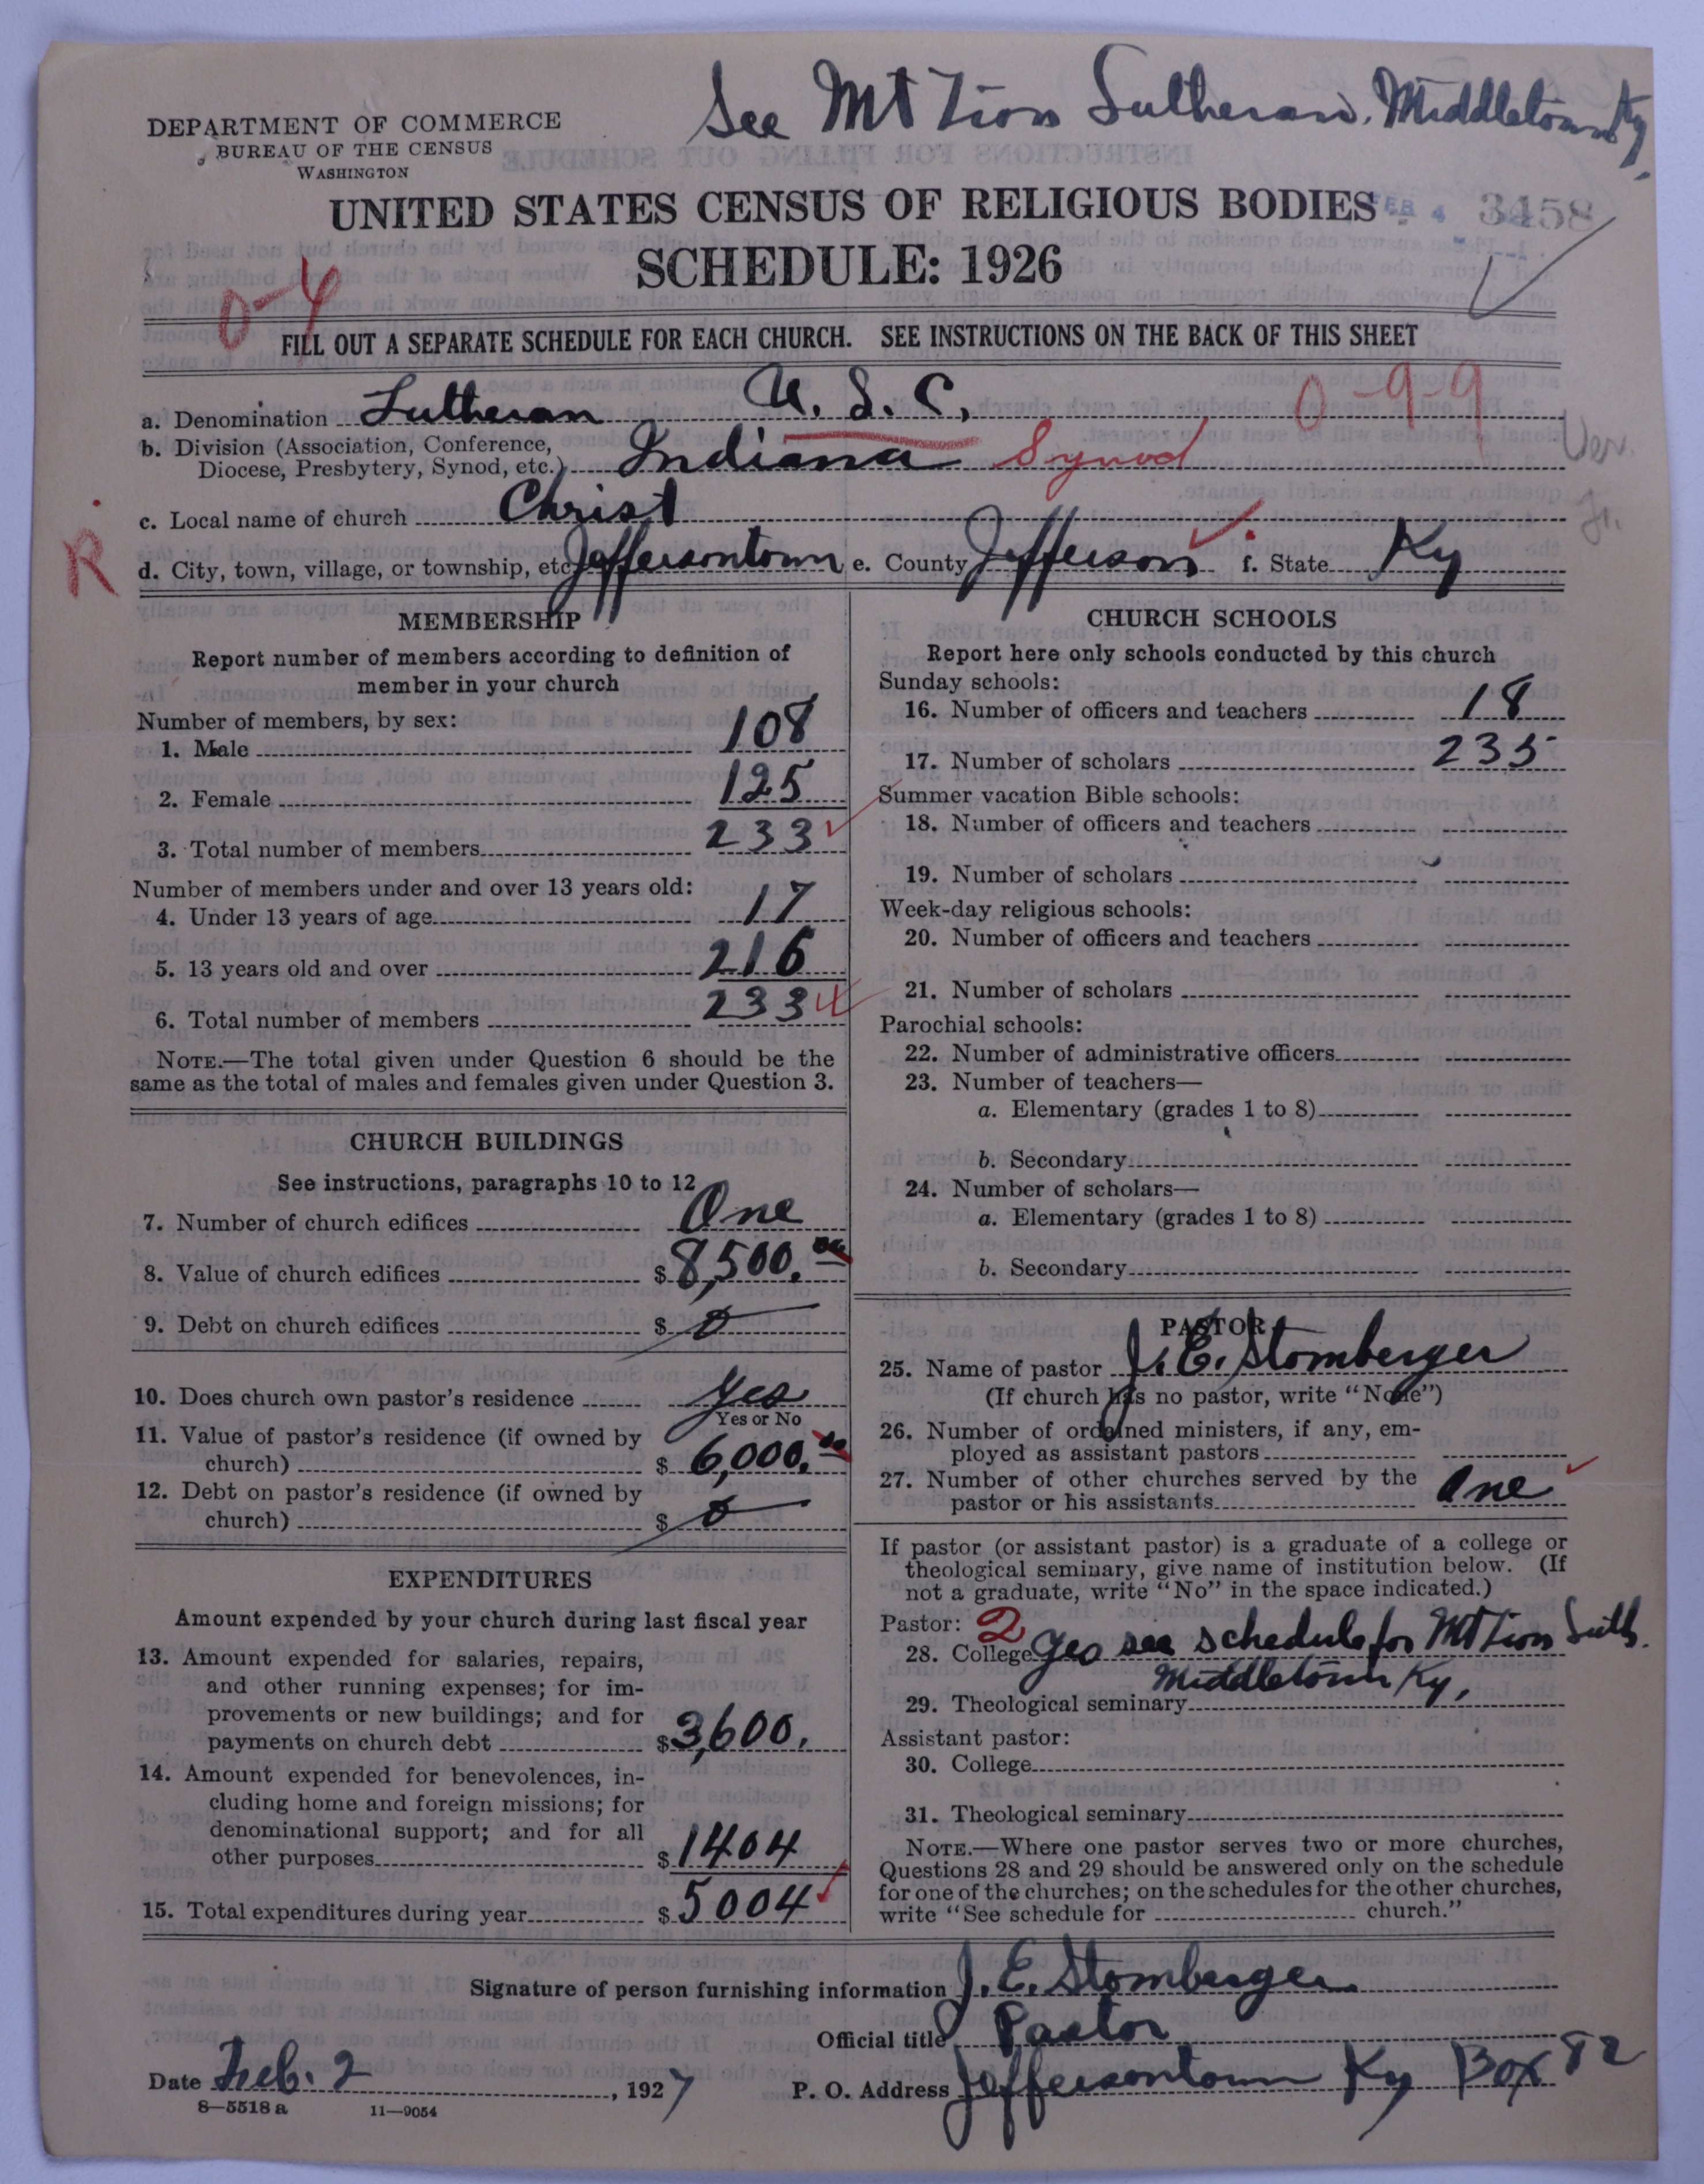 See Mt Zion Lutheran, Middletown Ky,
DEPARTMENT OF COMMERCE
BUREAU OF THE CENSUS
WASHINGTON
UNITED STATES CENSUS OF RELIGIOUS BODIES
FEB 4 3458
SCHEDULE: 1926
0-4
FILL OUT A SEPARATE SCHEDULE FOR EACH CHURCH. SEE INSTRUCTIONS ON THE BACK OF THIS SHEET
a. Denomination Lutheran U. L. C. 0-9-9
b. Division (Association, Conference,
Diocese, Presbytery, Synod, etc.) Indiana Synod
Ver.
c. Local name of church Christ
R
d. City, town, village, or township, etc. Jeffersontown e. County Jefferson f. State Ky
MEMBERSHIP
Report number of members according to definition of
member in your church
Number of members, by sex:
1. Male 108
2. Female 125
3. Total number of members 233
Number of members under and over 13 years old:
4. Under 13 years of age 17
5. 13 years old and over 216
6. Total number of members 233
NOTE.—The total given under Question 6 should be the
same as the total of males and females given under Question 3.
CHURCH BUILDINGS
See instructions, paragraphs 10 to 12
7. Number of church edifices One
8. Value of church edifices $ 8,500.00
9. Debt on church edifices $ 0
10. Does church own pastor's residence Yes
Yes or No
11. Value of pastor's residence (if owned by
church) $ 6,000.00
12. Debt on pastor's residence (if owned by
church) $ 0
EXPENDITURES
Amount expended by your church during last fiscal year
13. Amount expended for salaries, repairs,
and other running expenses; for im-
provements or new buildings; and for
payments on church debt $ 3,600.
14. Amount expended for benevolences, in-
cluding home and foreign missions; for
denominational support; and for all
other purposes $ 1404
15. Total expenditures during year $ 5004
CHURCH SCHOOLS
Report here only schools conducted by this church
Sunday schools:
16. Number of officers and teachers 18
17. Number of scholars 235
Summer vacation Bible schools:
18. Number of officers and teachers
19. Number of scholars
Week-day religious schools:
20. Number of officers and teachers
21. Number of scholars
Parochial schools:
22. Number of administrative officers
23. Number of teachers—
a. Elementary (grades 1 to 8)
b. Secondary
24. Number of scholars—
a. Elementary (grades 1 to 8)
b. Secondary
PASTOR
25. Name of pastor J. E. Stomberger
(If church has no pastor, write "None")
26. Number of ordained ministers, if any, em-
ployed as assistant pastors
27. Number of other churches served by the
pastor or his assistants One
If pastor (or assistant pastor) is a graduate of a college or
theological seminary, give name of institution below. (If
not a graduate, write "No" in the space indicated.)
Pastor: 2
28. College Yes see schedule for Mt Zion Luth.
Middletown Ky,
29. Theological seminary
Assistant pastor:
30. College
31. Theological seminary
NOTE.—Where one pastor serves two or more churches,
Questions 28 and 29 should be answered only on the schedule
for one of the churches; on the schedules for the other churches,
write "See schedule for church."
Signature of person furnishing information J. E. Stomberger
Official title Pastor
Date Feb. 2, 1927 P. O. Address Jeffersontown Ky Box 82
8—5518 a 11—9054